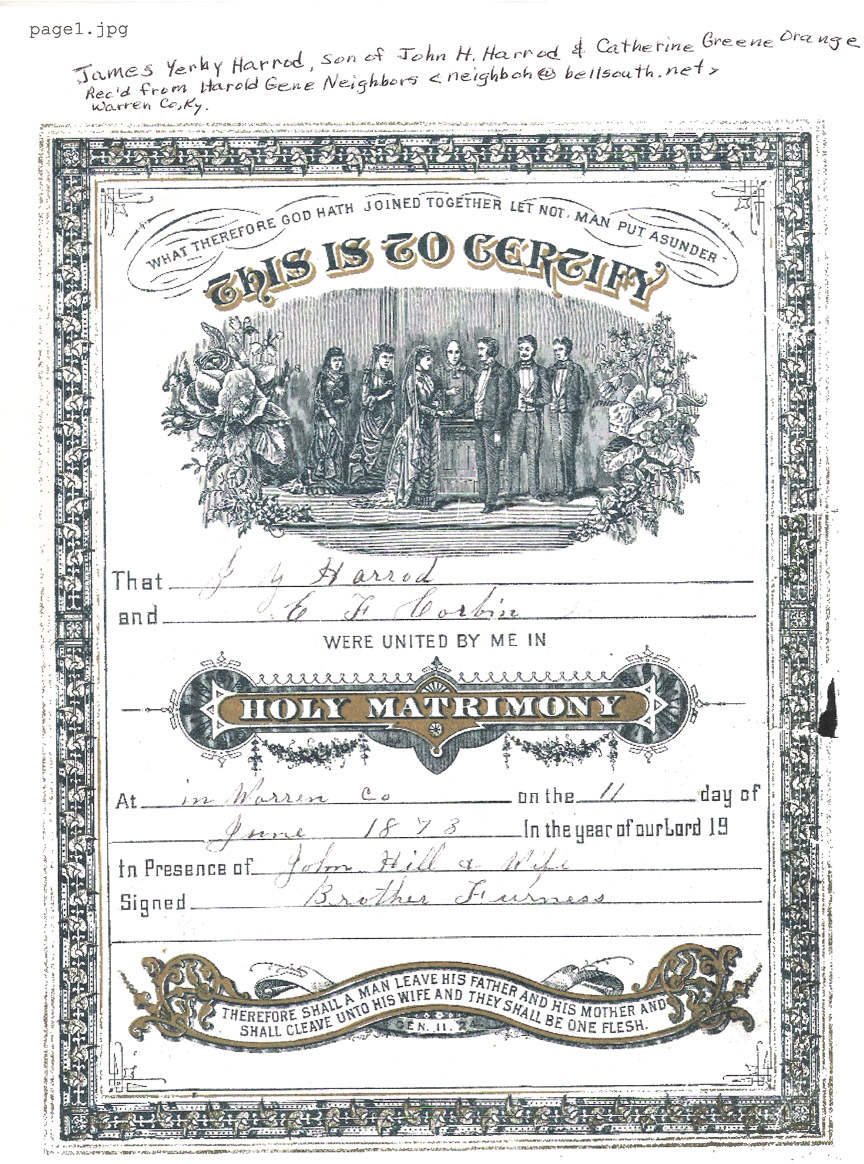 page1.jpg
James Yerby Harrod, son of John H. Harrod & Catherine Greene Orange
Rec'd from Harold Gene Neighbors <neighboh@bellsouth.net>
Warren Co, Ky.
WHAT THEREFORE GOD HATH JOINED TOGETHER LET NOT MAN PUT ASUNDER
THIS IS TO CERTIFY
That J Y Harrod
and E F Corbin
WERE UNITED BY ME IN
HOLY MATRIMONY
At in Warren Co on the 11 day of
June 1873 In the year of our Lord 19
In Presence of John Hill & Wife
Signed Brother Furness
THEREFORE SHALL A MAN LEAVE HIS FATHER AND HIS MOTHER AND
SHALL CLEAVE UNTO HIS WIFE AND THEY SHALL BE ONE FLESH.
GEN. 11. 24